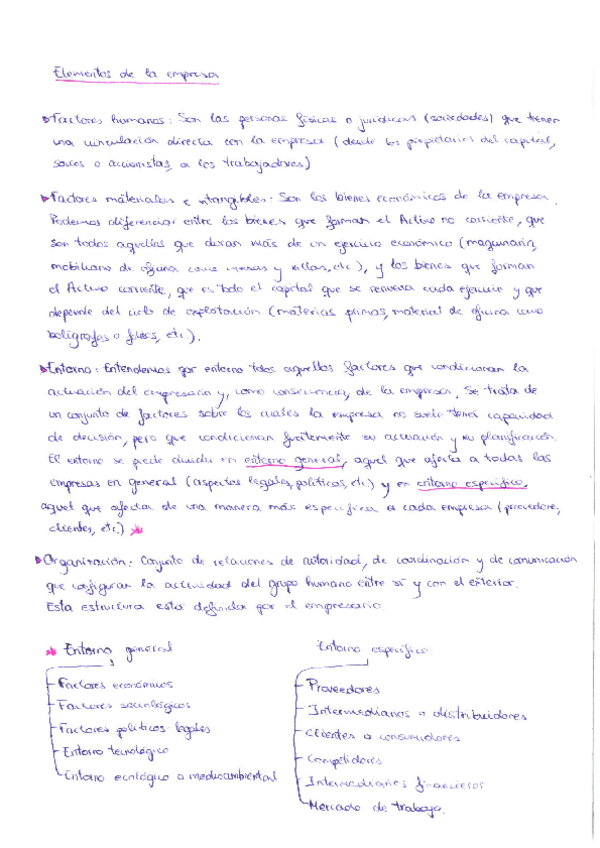 Elementos de la empresa
Factores humanos: Son las personas físicas o jurídicas (sociedades) que tienen
una vinculación directa con la empresa (desde los propietarios del capital,
socios o accionistas a los trabajadores)
Factores materiales e intangibles: Son los bienes económicos de la empresa.
Podemos diferenciar entre los bienes que forman el Activo no corriente, que
son todos aquellos que duran más de un ejercicio económico (maquinaria,
mobiliario de oficina como mesas y sillas, etc), y los bienes que forman
el Activo corriente, que es todo el capital que se renueva cada ejercicio y que
depende del ciclo de explotación (materias primas, material de oficina como
bolígrafos o folios, etc).
Entorno: Entendemos por entorno todos aquellos factores que condicionan la
actuación del empresario y, como consecuencia, de la empresa. Se trata de
un conjunto de factores sobre los cuales la empresa no suele tener capacidad
de decisión, pero que condicionan fuertemente su actuación y su planificación.
El entorno se puede dividir en entorno general, aquel que afecta a todas las
empresas en general (aspectos legales, políticos, etc) y en entorno específico,
aquel que afecta de una manera más específica a cada empresa (proveedores,
clientes, etc)
Organización: Conjunto de relaciones de autoridad, de coordinación y de comunicación
que configuran la actividad del grupo humano entre sí y con el exterior.
Esta estructura está definida por el empresario
Entorno general
Factores económicos
Factores sociológicos
Factores políticos-legales
Entorno tecnológico
Entorno ecológico o medioambiental
Entorno específico
Proveedores
Intermediarios o distribuidores
Clientes o consumidores
Competidores
Intermediarios financieros
Mercado de trabajo.